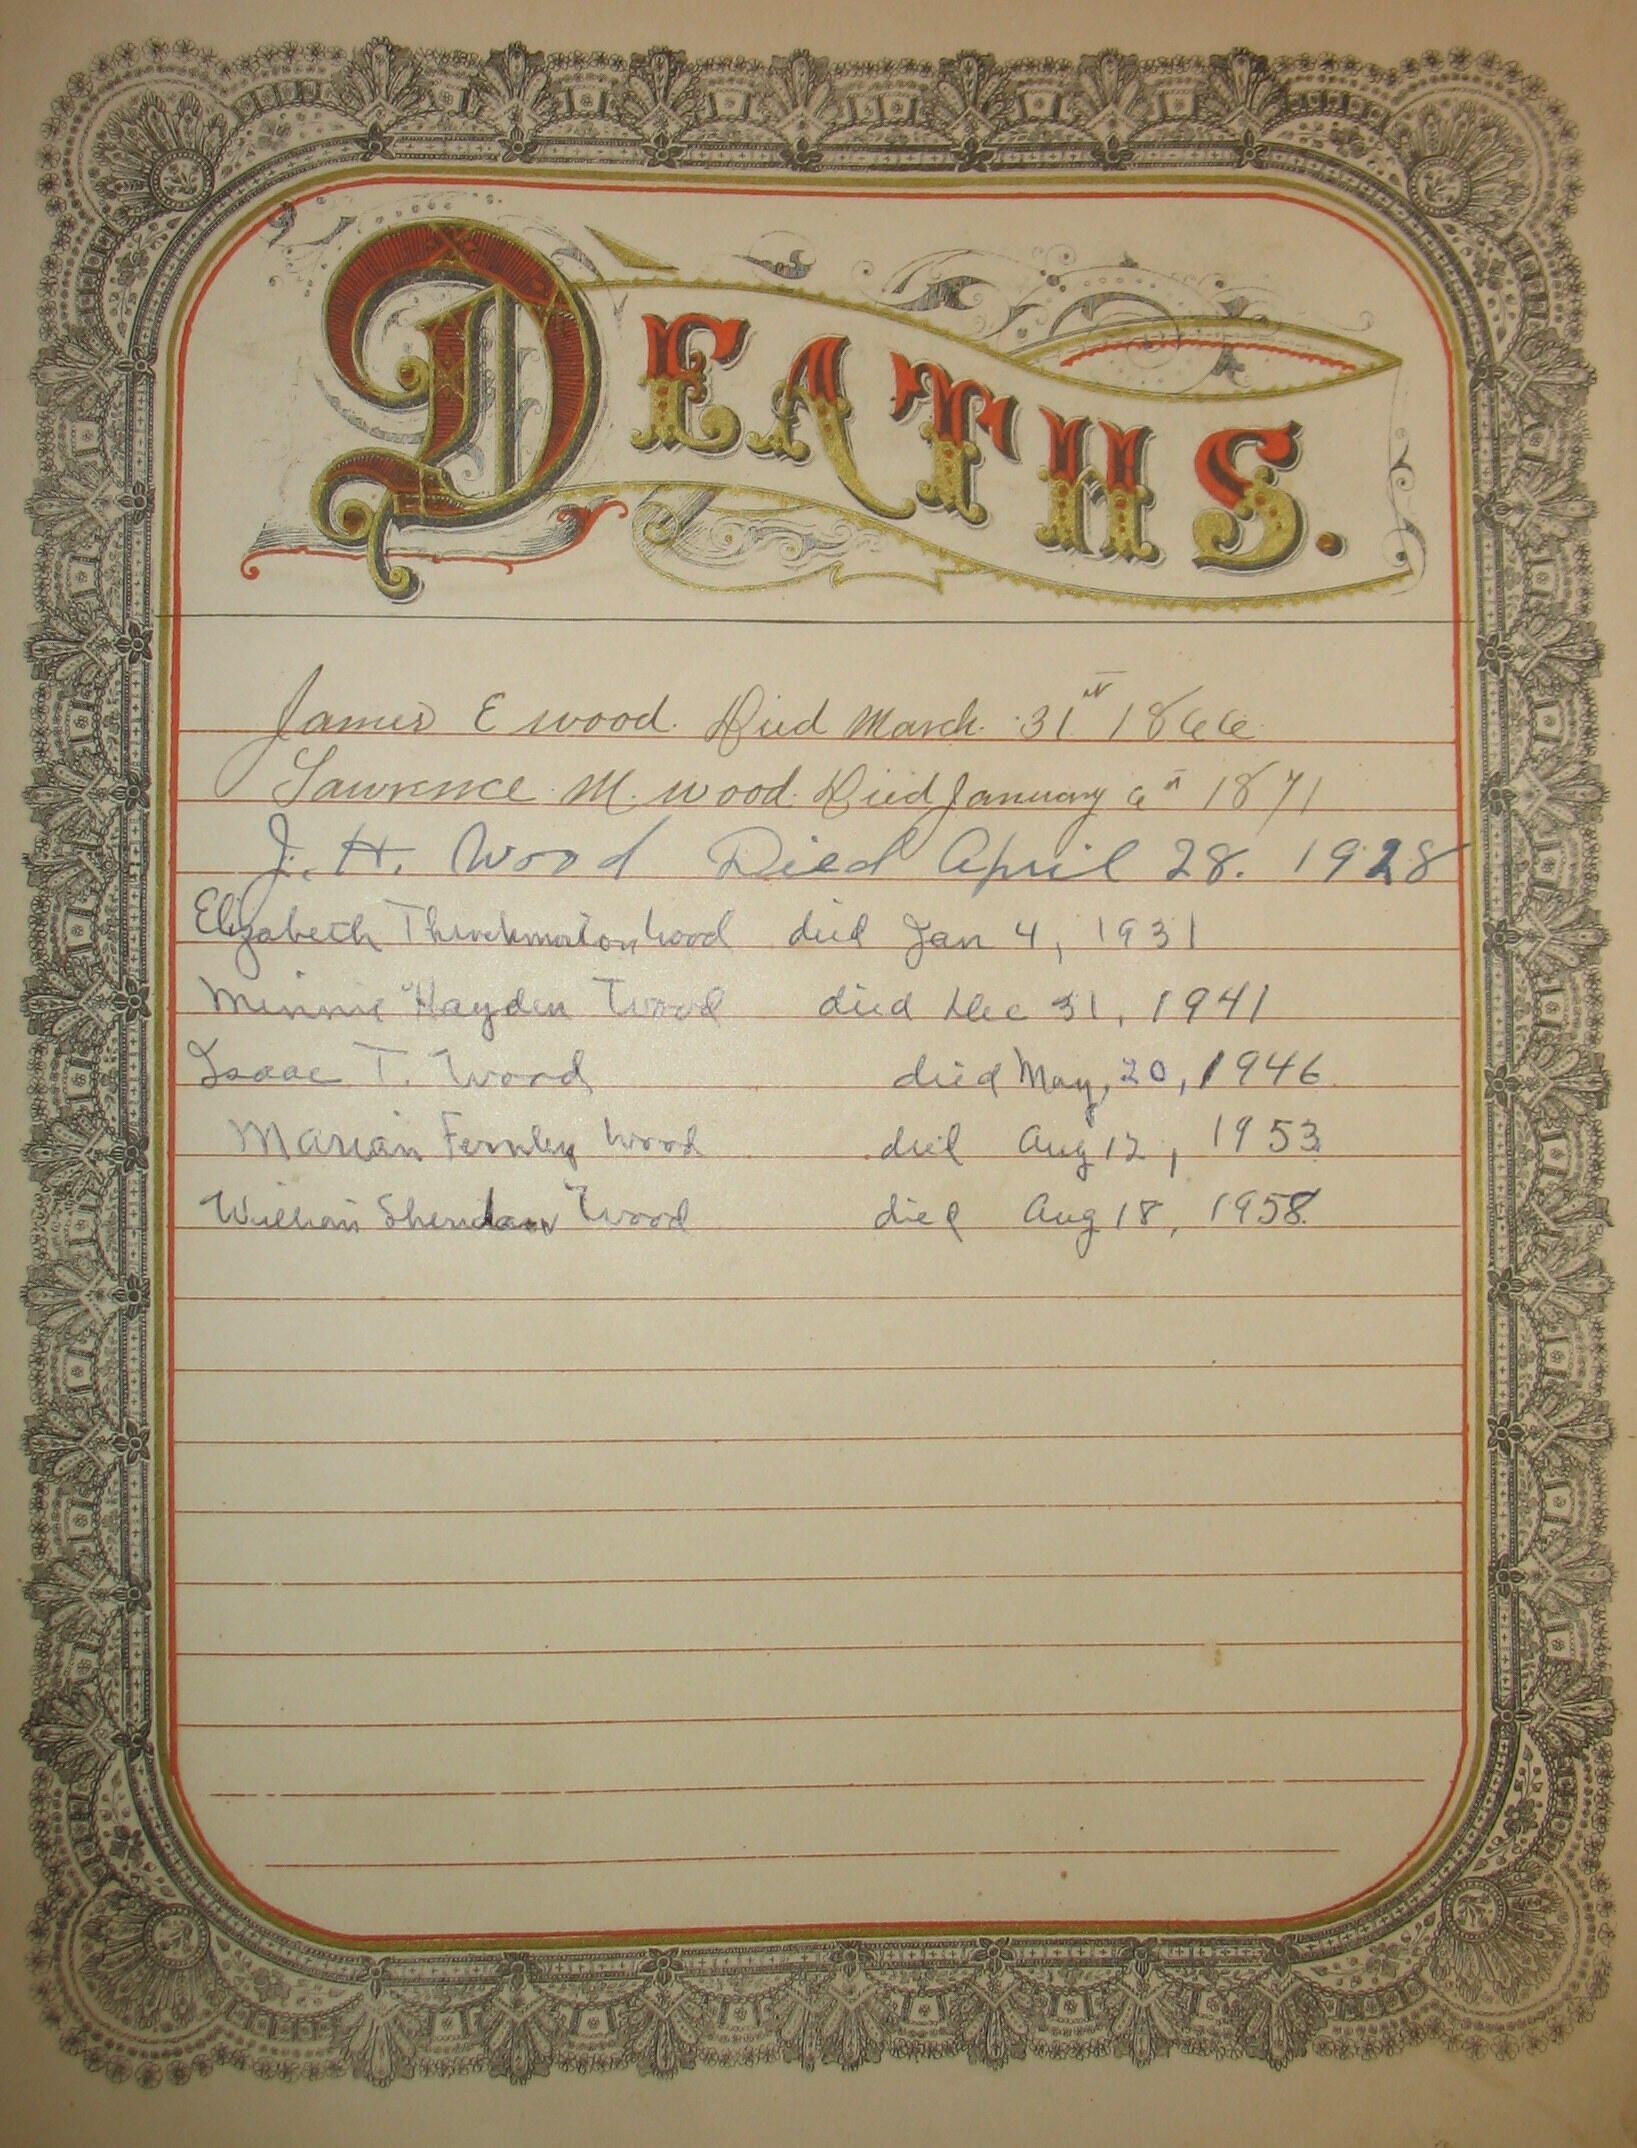 DEATHS.
James E wood. Died March. 31st 1866
Lawrence M. wood. Died January 6th 1871
J. H. Wood Died April 28. 1928
Elizabeth Throckmorton Wood died Jan 4, 1931
Minnie Hayden Wood died Dec 31, 1941
Isaac T. Wood died May, 20, 1946
Marian Fernley Wood died Aug 12, 1953
William Sheridan Wood died Aug 18, 1958